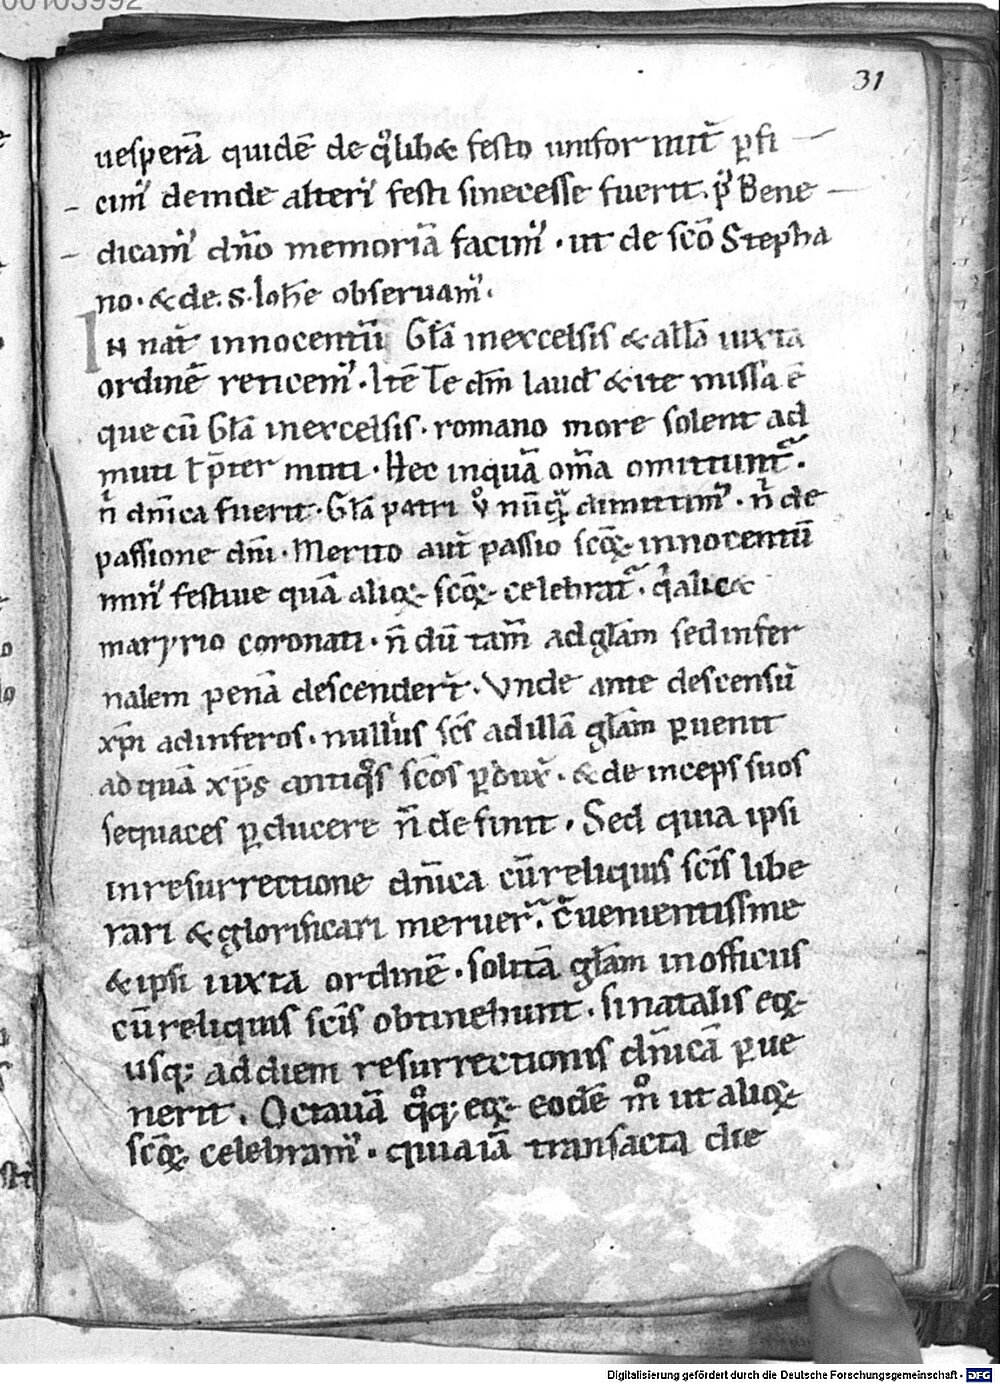 00103992
31
uesperā quidē de qͦlibꝫ festo uniformit̄ ꝑfi
cim᷒ deinde alteri᷒ festi si necesse fuerit. p᷒ Bene
dicam᷒ dn̄o memoriā facim᷒ · ut de sc̄o Stepha
no · & de · S · Ioh̄e obseruam᷒ ·
IN nat̄ innocentū Gl̄a in excelsis & all̄a iuxta
ordinē reticem᷒ · Itē Te dm̄ laud̄ & ite missa ē
que cū Gl̄a in excelsis · romano more solent ad
muti ł p̄ter muti · Hec inquā om̄a omittunt᷑ ·
n̄ dn̄ica fuerit · Gl̄a patri ů nūqᷓ dimittim᷒ · n̄ de
passione dn̄i · Merito aut̄ passio sc̄oꝝ innocentū
min᷒ festiue quā alioꝝ sc̄oꝝ celebrat᷑ · qͥa lic&
martyrio coronati · n̄ dū tam̄ ad gl̄am sed infer
nalem penā descender̄t · Vnde ante descensū
xp̄i ad inferos · nullus sc̄s ad illā gl̄am ꝑuenit
ad quā xp̄s antiqͦs sc̄os ꝑdux̄ · & de inceps suos
sequaces ꝑducere n̄ desinit · Sed quia ipsi
in resurrectione dn̄ica cū reliquis sc̄is libe
rari & glorificari meruer̄ · c̄uenientissime
& ipsi iuxta ordinē · solitā gl̄am in officiis
cū reliquis sc̄is obtinebunt · si natalis eoꝝ
usqꝫ ad diem resurrectionis dn̄icā ꝑue
nerit · Octauā qͦqꝫ eoꝝ eodē mͦ ut alioꝝ
sc̄oꝝ celebram᷒ · quia iā transacta die
Digitalisierung gefördert durch die Deutsche Forschungsgemeinschaft - DFG